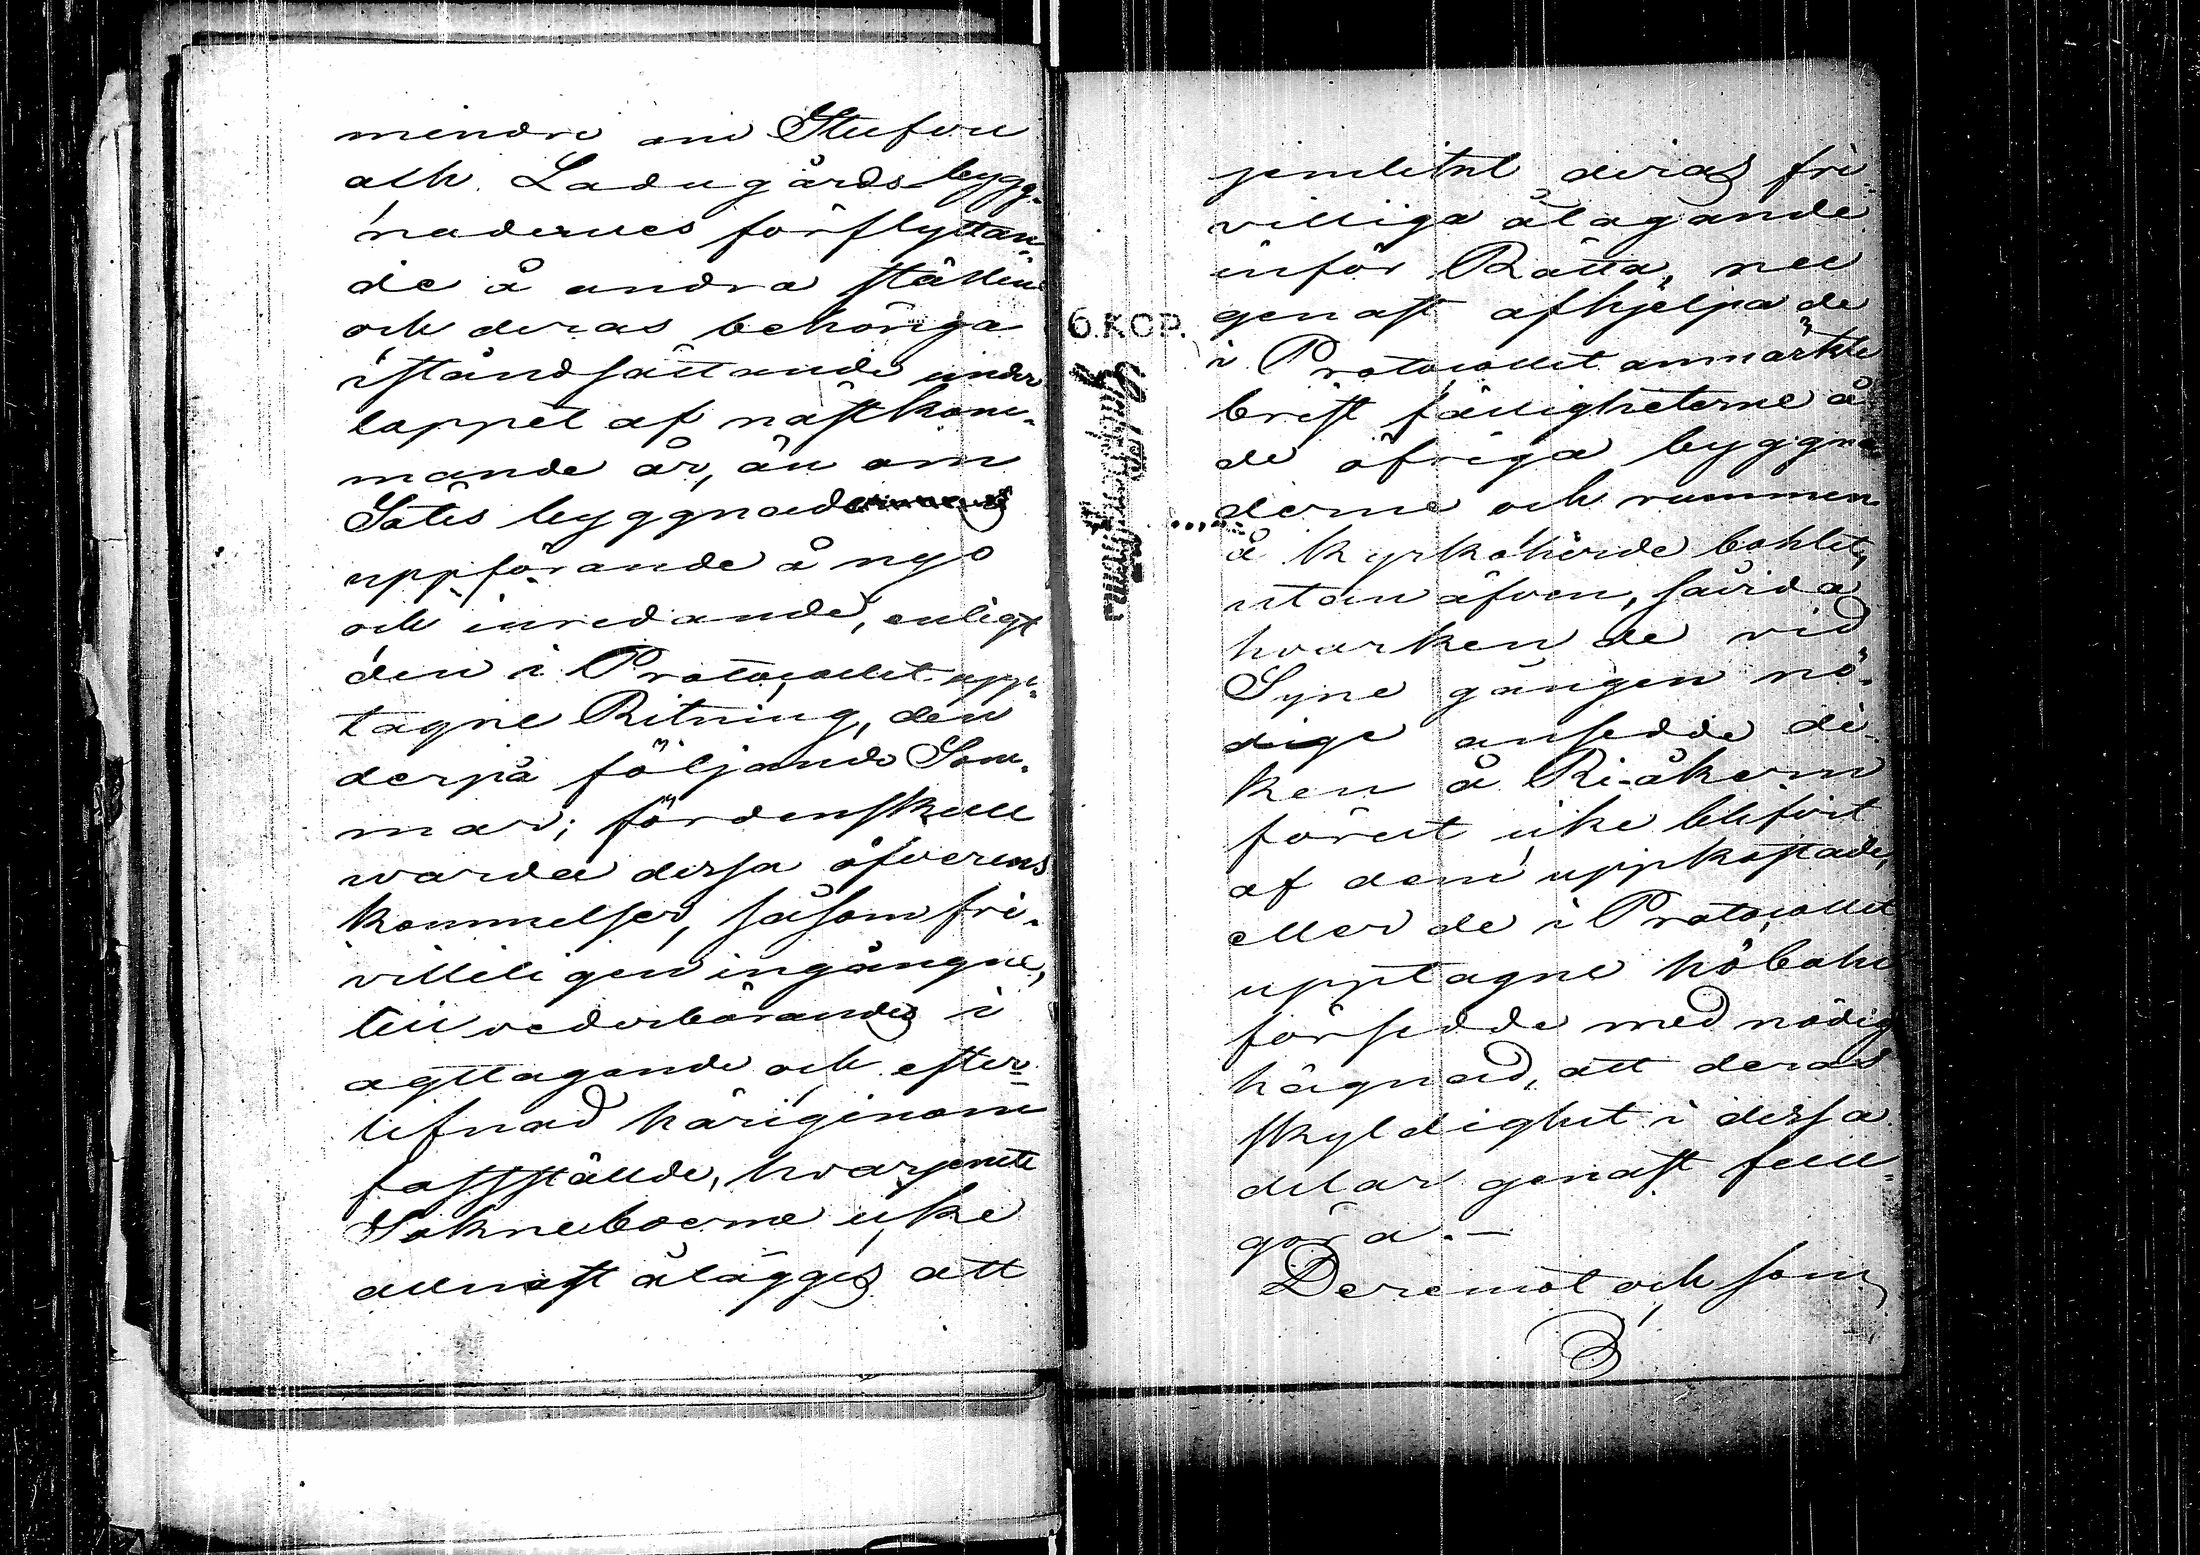 mindre om Stufvu
och Ladugårds bygg-
nadernes förflyttan-
de å andra ställen
och deras behöriga
iståndsättande under
loppet af nästkom-
mande år, än om
Sätes byggnadernes
uppförande å nyo
och inredande, enligt
den i Protocollet upp-
tagne Ritning, den
derpå följande Som-
mar; fördenskull
warda dessa öfverens
kommelser, såsom fri-
villeligen ingångne,
till vederbörandes i
agttagande och efter-
lefnad härigenom
fastställde, hvarjemte
Sokneboerne icke
allenast åläggas att
jemlikt deras fri-
villiga åtagande
inför Rätta, nu
genast afhjelpa de
i Protocollet anmärkte
bristfälligheterne å
de öfriga byggna
derne och rummen
å kyrkoherde bohlet,
utan äfven, såvida
hvarken de vid
Syne gången nö-
dige ansedde di-
ken å Ri-åkern
förut icke blifvit
af dem uppkastade,
eller de i Protocollet
upptagne höbohl
försedde med nödig
hägnad, att deras
skyldighet i dessa
delar genast full-
göra.-
Deremot och som
6.KOP.